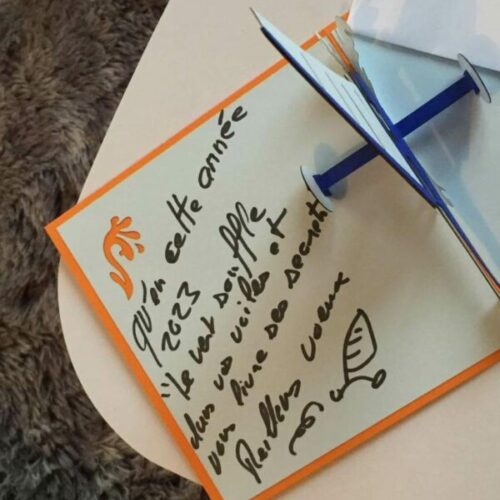 Qu'en cette année
2023
"Le vent souffle
dans vos voiles et
vous livre ses secrets"
Meilleurs voeux